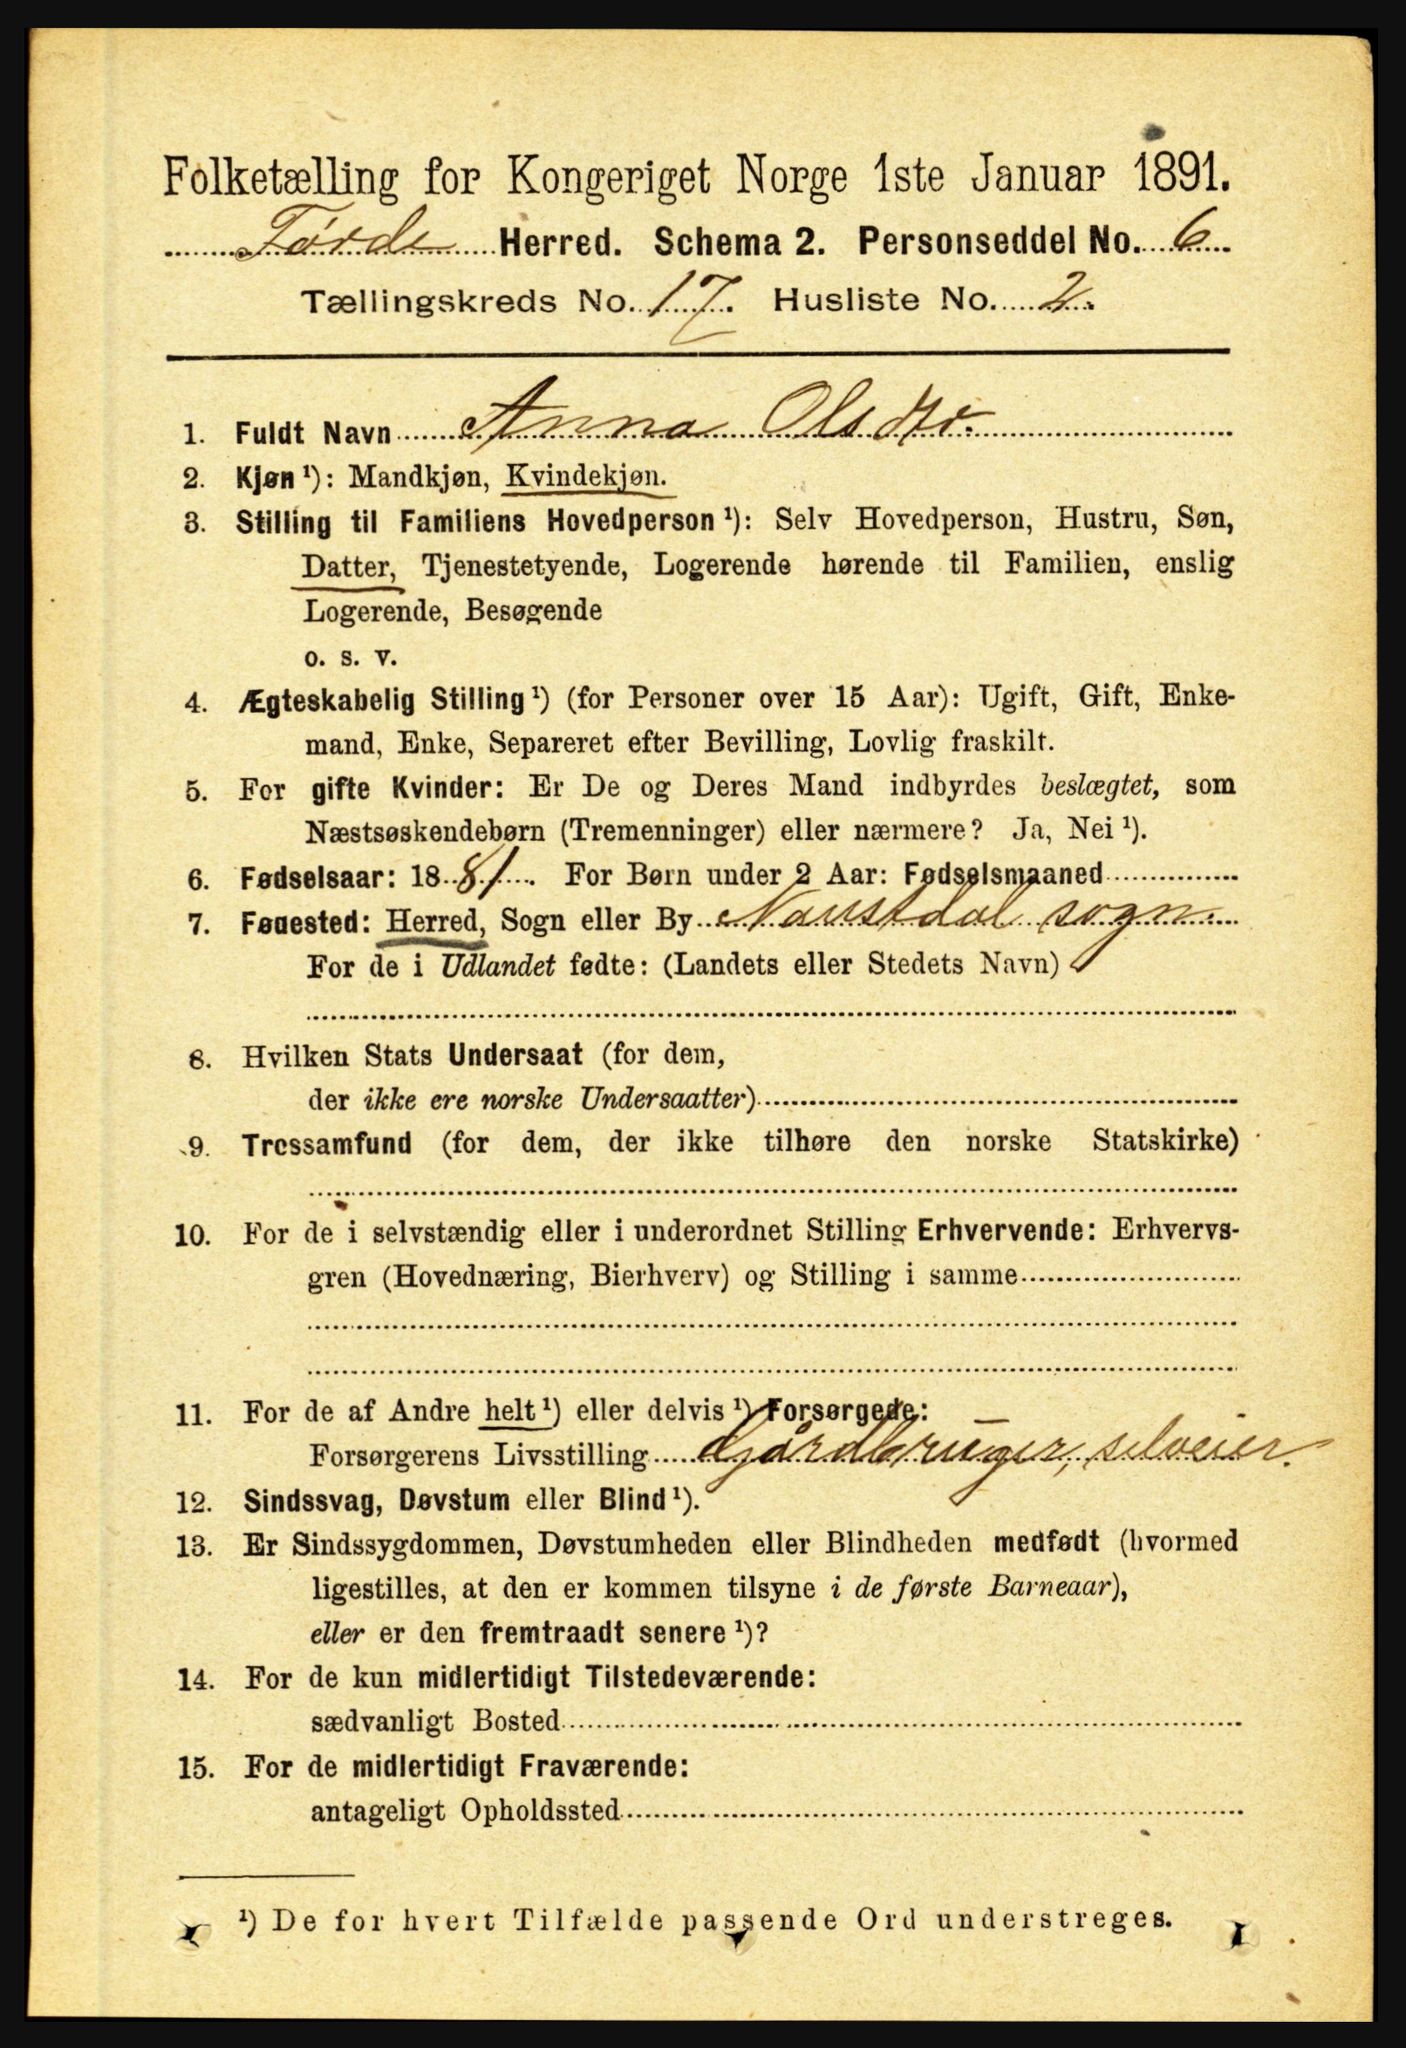 Folketælling for Kongeriget Norge 1ste Januar 1891.
Førde Herred. Schema 2. Personseddel No. 6
Tællingskreds No. 17. Husliste No. 2.
1. Fuldt Navn Anna Olsdtr.
2. Kjøn ¹): Mandkjøn, Kvindekjøn.
3. Stilling til Familiens Hovedperson ¹): Selv Hovedperson, Hustru, Søn,
Datter, Tjenestetyende, Logerende hørende til Familien, enslig
Logerende, Besøgende
o. s. v.
4. Ægteskabelig Stilling ¹) (for Personer over 15 Aar): Ugift, Gift, Enke-
mand, Enke, Separeret efter Bevilling, Lovlig fraskilt.
5. For gifte Kvinder: Er De og Deres Mand indbyrdes beslægtet, som
Næstsøskendebørn (Tremenninger) eller nærmere? Ja, Nei ¹).
6. Fødselsaar: 1881. For Børn under 2 Aar: Fødselsmaaned
7. Fødested: Herred, Sogn eller By Naustdal sogn.
For de i Udlandet fødte: (Landets eller Stedets Navn)
8. Hvilken Stats Undersaat (for dem,
der ikke ere norske Undersaatter)
9. Trossamfund (for dem, der ikke tilhøre den norske Statskirke)
10. For de i selvstændig eller i underordnet Stilling Erhvervende: Erhvervs-
gren (Hovednæring, Bierhverv) og Stilling i samme
11. For de af Andre helt ¹) eller delvis ¹) Forsørgede:
Forsørgerens Livsstilling Gårdbruger, selveier.
12. Sindssvag, Døvstum eller Blind ¹).
13. Er Sindssygdommen, Døvstumheden eller Blindheden medfødt (hvormed
ligestilles, at den er kommen tilsyne i de første Barneaar),
eller er den fremtraadt senere ¹)?
14. For de kun midlertidigt Tilstedeværende:
sædvanligt Bosted
15. For de midlertidigt Fraværende:
antageligt Opholdssted
¹) De for hvert Tilfælde passende Ord understreges.